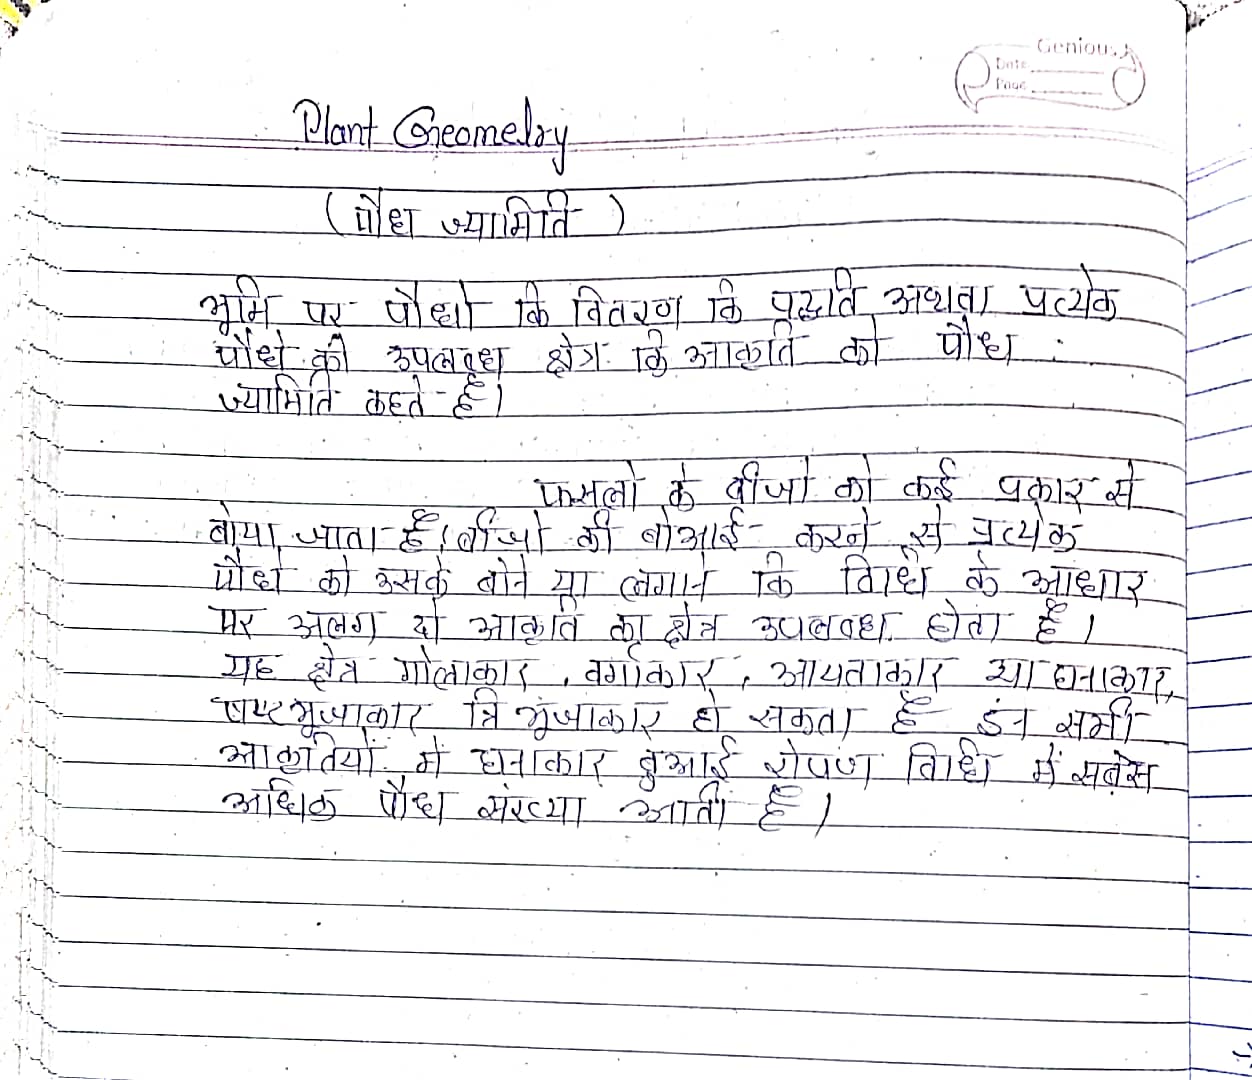 Genious
Date
Page
Plant Geometry
(पौध ज्यामिति)
भूमि पर पौधो कि वितरण कि पद्धति अथवा प्रत्येक
पौधे की उपलब्ध क्षेत्र कि आकृति को पौध
ज्यामिति कहते है।
फसलो के बीजो को कई प्रकार से
बोया जाता है। बीजो की बोआई करने से प्रत्येक
पौधे को उसके बोने या लगाने कि विधि के आधार
पर अलग दो आकृति का क्षेत्र उपलब्ध होता है।
यह क्षेत्र गोलाकार, वर्गाकार, आयताकार या घनाकार,
षष्टभूजाकार त्रिभूंजाकार हो सकता है इन सभी
आकृतियों में घनाकार बुआई रोपण विधि में सबसे
अधिक पौध संख्या आती है।